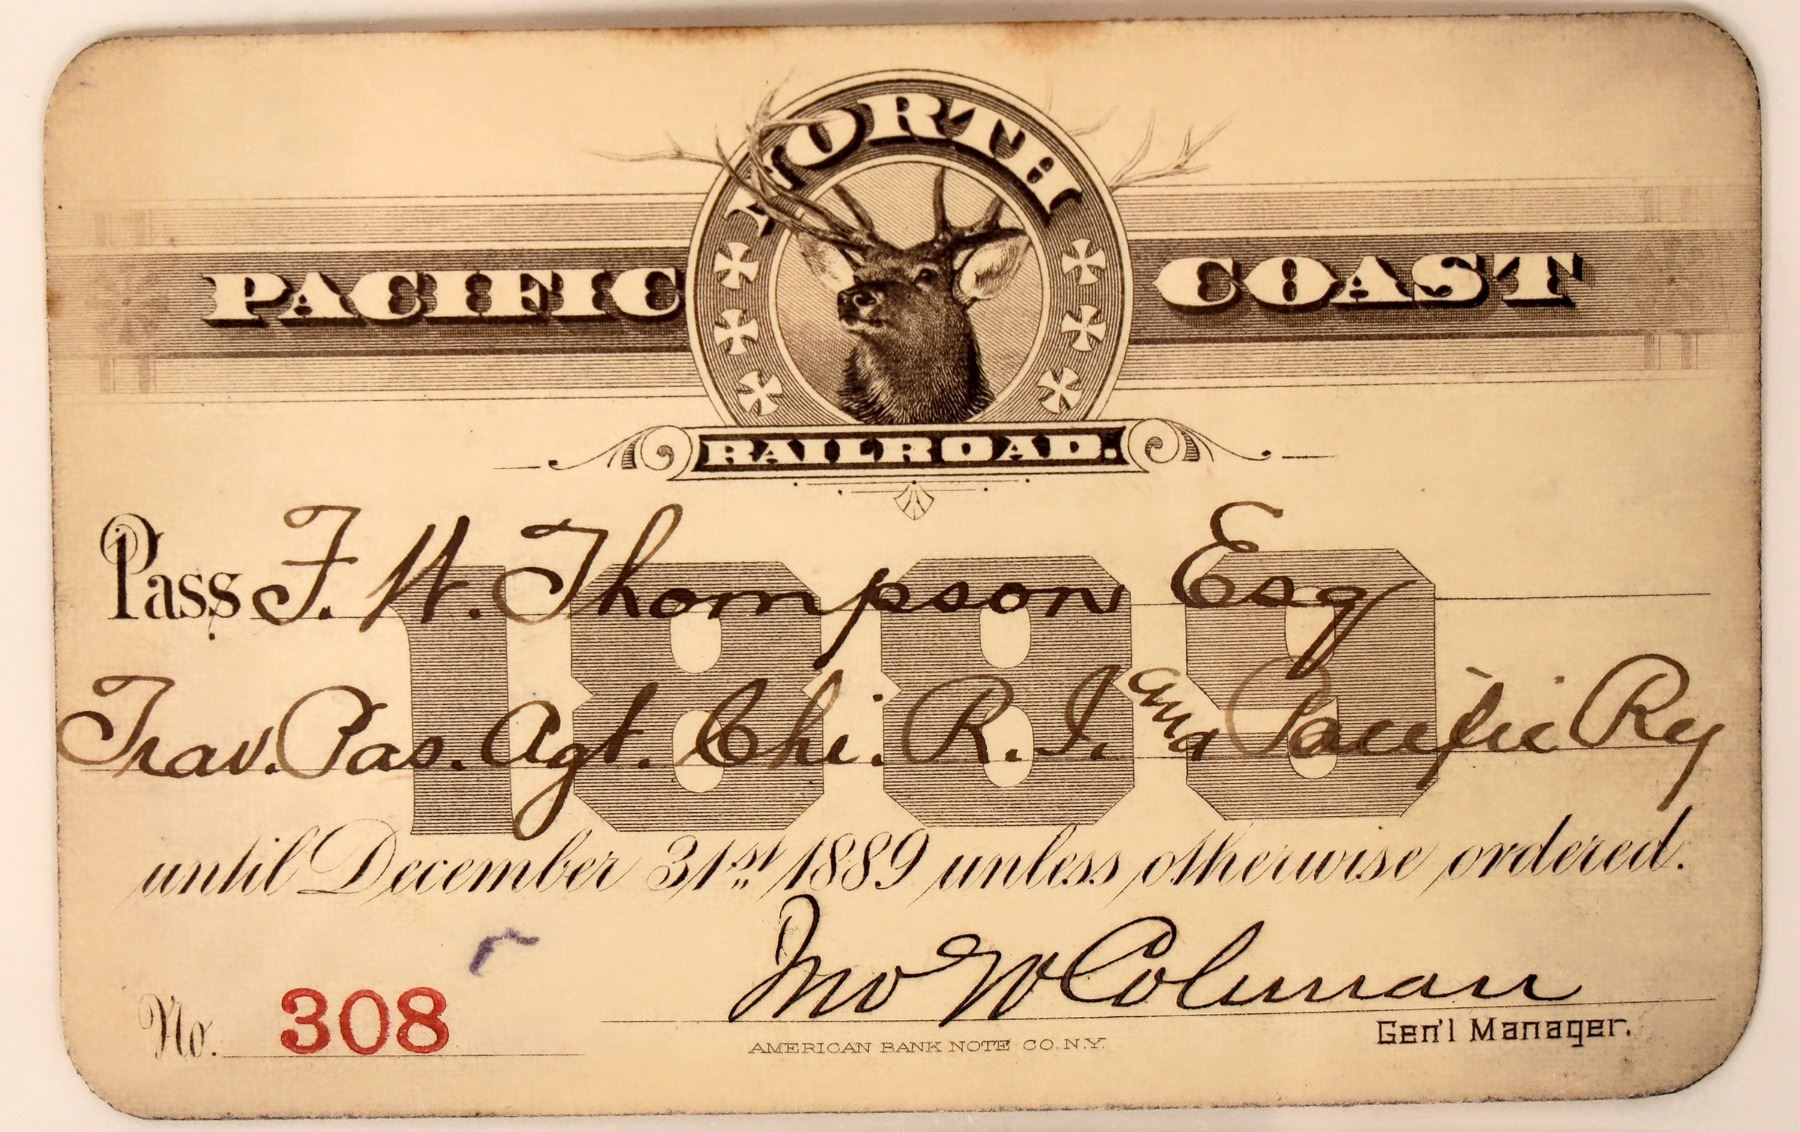 NORTH
PACIFIC COAST
RAILROAD.
1889
Pass F. W. Thompson Esq
Trav. Pas. Agt. Chi. R. I. and Pacific Ry
until December 31st 1889 unless otherwise ordered.
Jno W Coleman
No. 308
Gen'l Manager.
AMERICAN BANK NOTE CO. N.Y.